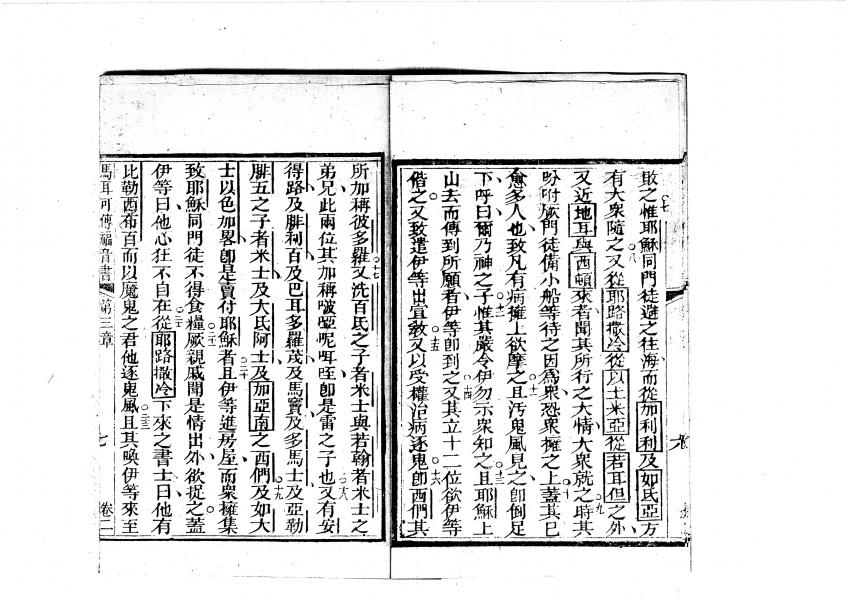 敢之惟耶穌同門徒避之往海而從加利利及如氏亞方
有大衆隨之又從耶路撒冷從以土米亞從若耳但之外
又近地耳與西頓來者聞其所行之大情大衆就之時其
吩咐厥門徒備小船等待之因爲衆恐衆擁之上蓋其已
愈多人也致凡有病擁上欲摩之且汚鬼風見之卽倒足
下呼曰爾乃神之子惟其嚴令伊勿示衆知之且耶穌上
山去而傳到所願者伊等卽到之又其立十二位欲伊等
偕之又致遣伊等出宣敎又以受權治病逐鬼卽西們其
所加稱彼多羅又洗百氏之子者米士與若翰者米士之
弟兄此兩位其加稱㖕㖿呢㖇㗌卽是雷之子也又有安
得路及腓利百及巴耳多羅茂及馬竇及多馬士及亞勒
腓五之子者米士及大氏阿士及加亞南之西們及如大
士以色加畧卽是賣付耶穌者且伊等進房屋而衆擁集
致耶穌同門徒不得食糧厥親戚聞是情出外欲捉之蓋
伊等曰他心狂不自在從耶路撒冷下來之書士曰他有
比勒西布百而以魔鬼之君他逐鬼風且其喚伊等來至
馬耳可傳福音書 第三章 七 卷二